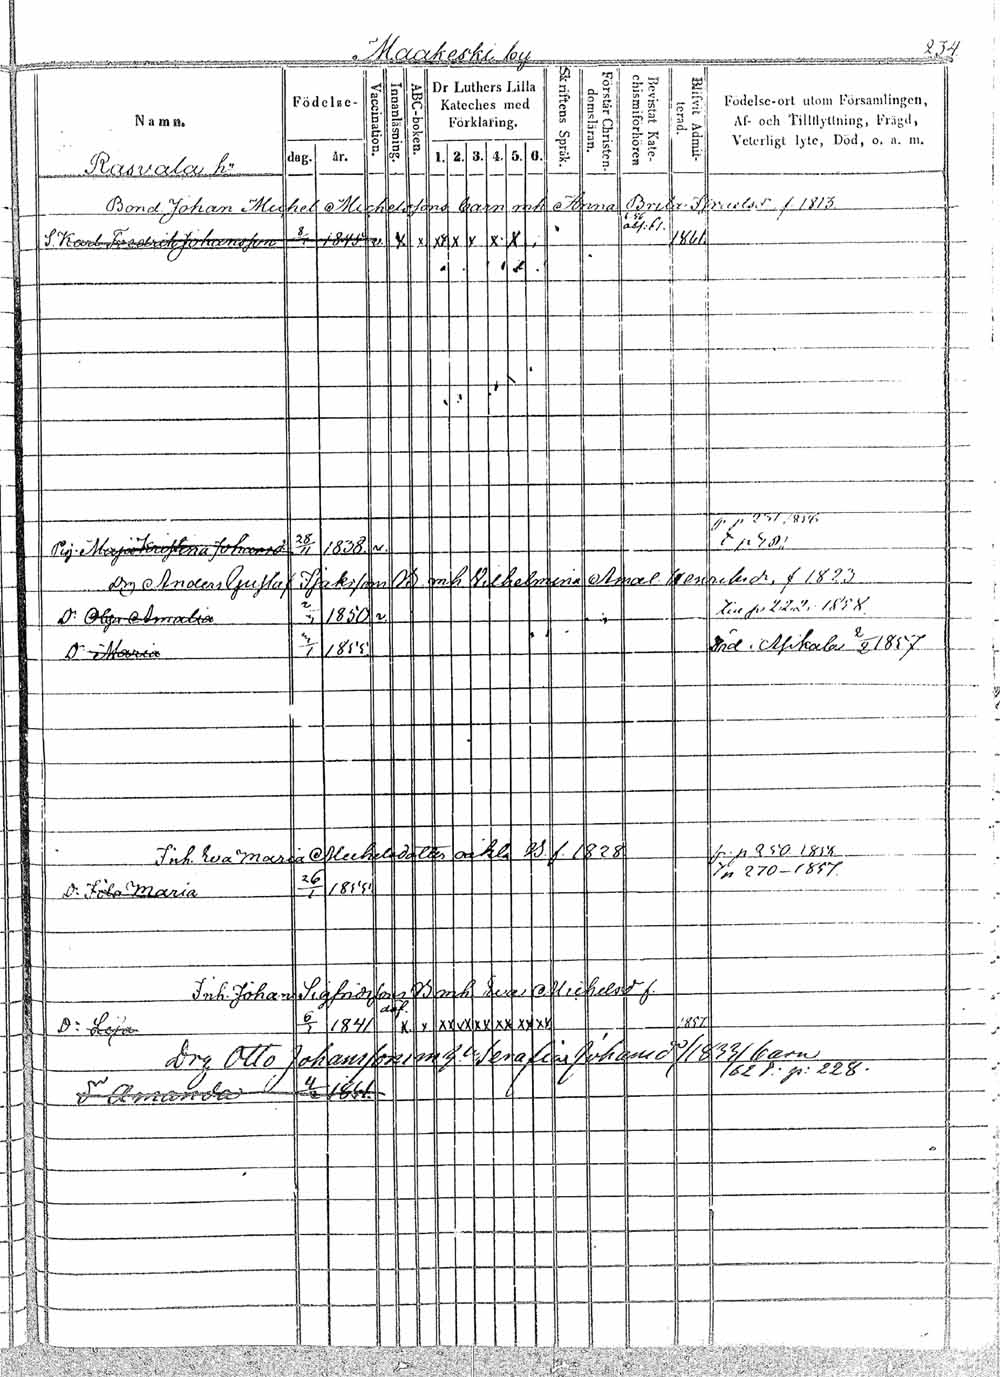 Maakeski by
234
Namn.
Födelse-
dag. år.
Vaccination.
Innanläsning.
ABC-boken.
Dr Luthers Lilla
Kateches med
Förklaring.
1. 2. 3. 4. 5. 6.
Skriftens Språk.
Förstår Christen-
domsläran.
Bevistat Kate-
chismiförhören
Blifvit Admit-
terad.
Födelse-ort utom Församlingen,
Af- och Tillflyttning, Frägd,
Veterligt lyte, Död, o. a. m.
Rasvala hn
Bond. Johan Michel Michelssons barn mh Anna Brita f 1813
S. Karl Fredrik Johansson 8/1 1845 v. x x xx x x x x 1861.
Pig. Maja Kristina Johansd 28/11 1838. v.
Drg Anders Gustaf mh Vilhelmina Amal Henriksdr. f 1823
D. Olga Amalia 1850 v p 222. 1858.
D. Maria 1855. 2/2 1857
Inh. Eva Maria Michelsdotter f. 1828 p. p 250 1858
p 270-1857.
D. Maria 26/1 1855.
Inh. Johan Sigfridssons mh Eva Michelsd f.
D: 6/1 1841 x. x xx xx xx xx xx xx 1857
Drg Otto Johanssons m h Serafia Johansd 1833 barn
62 p. 228.
Dr Amanda 4/2 1861.